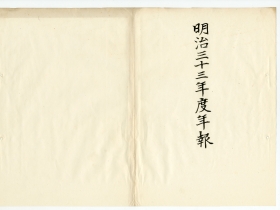 明治三十三年度年報